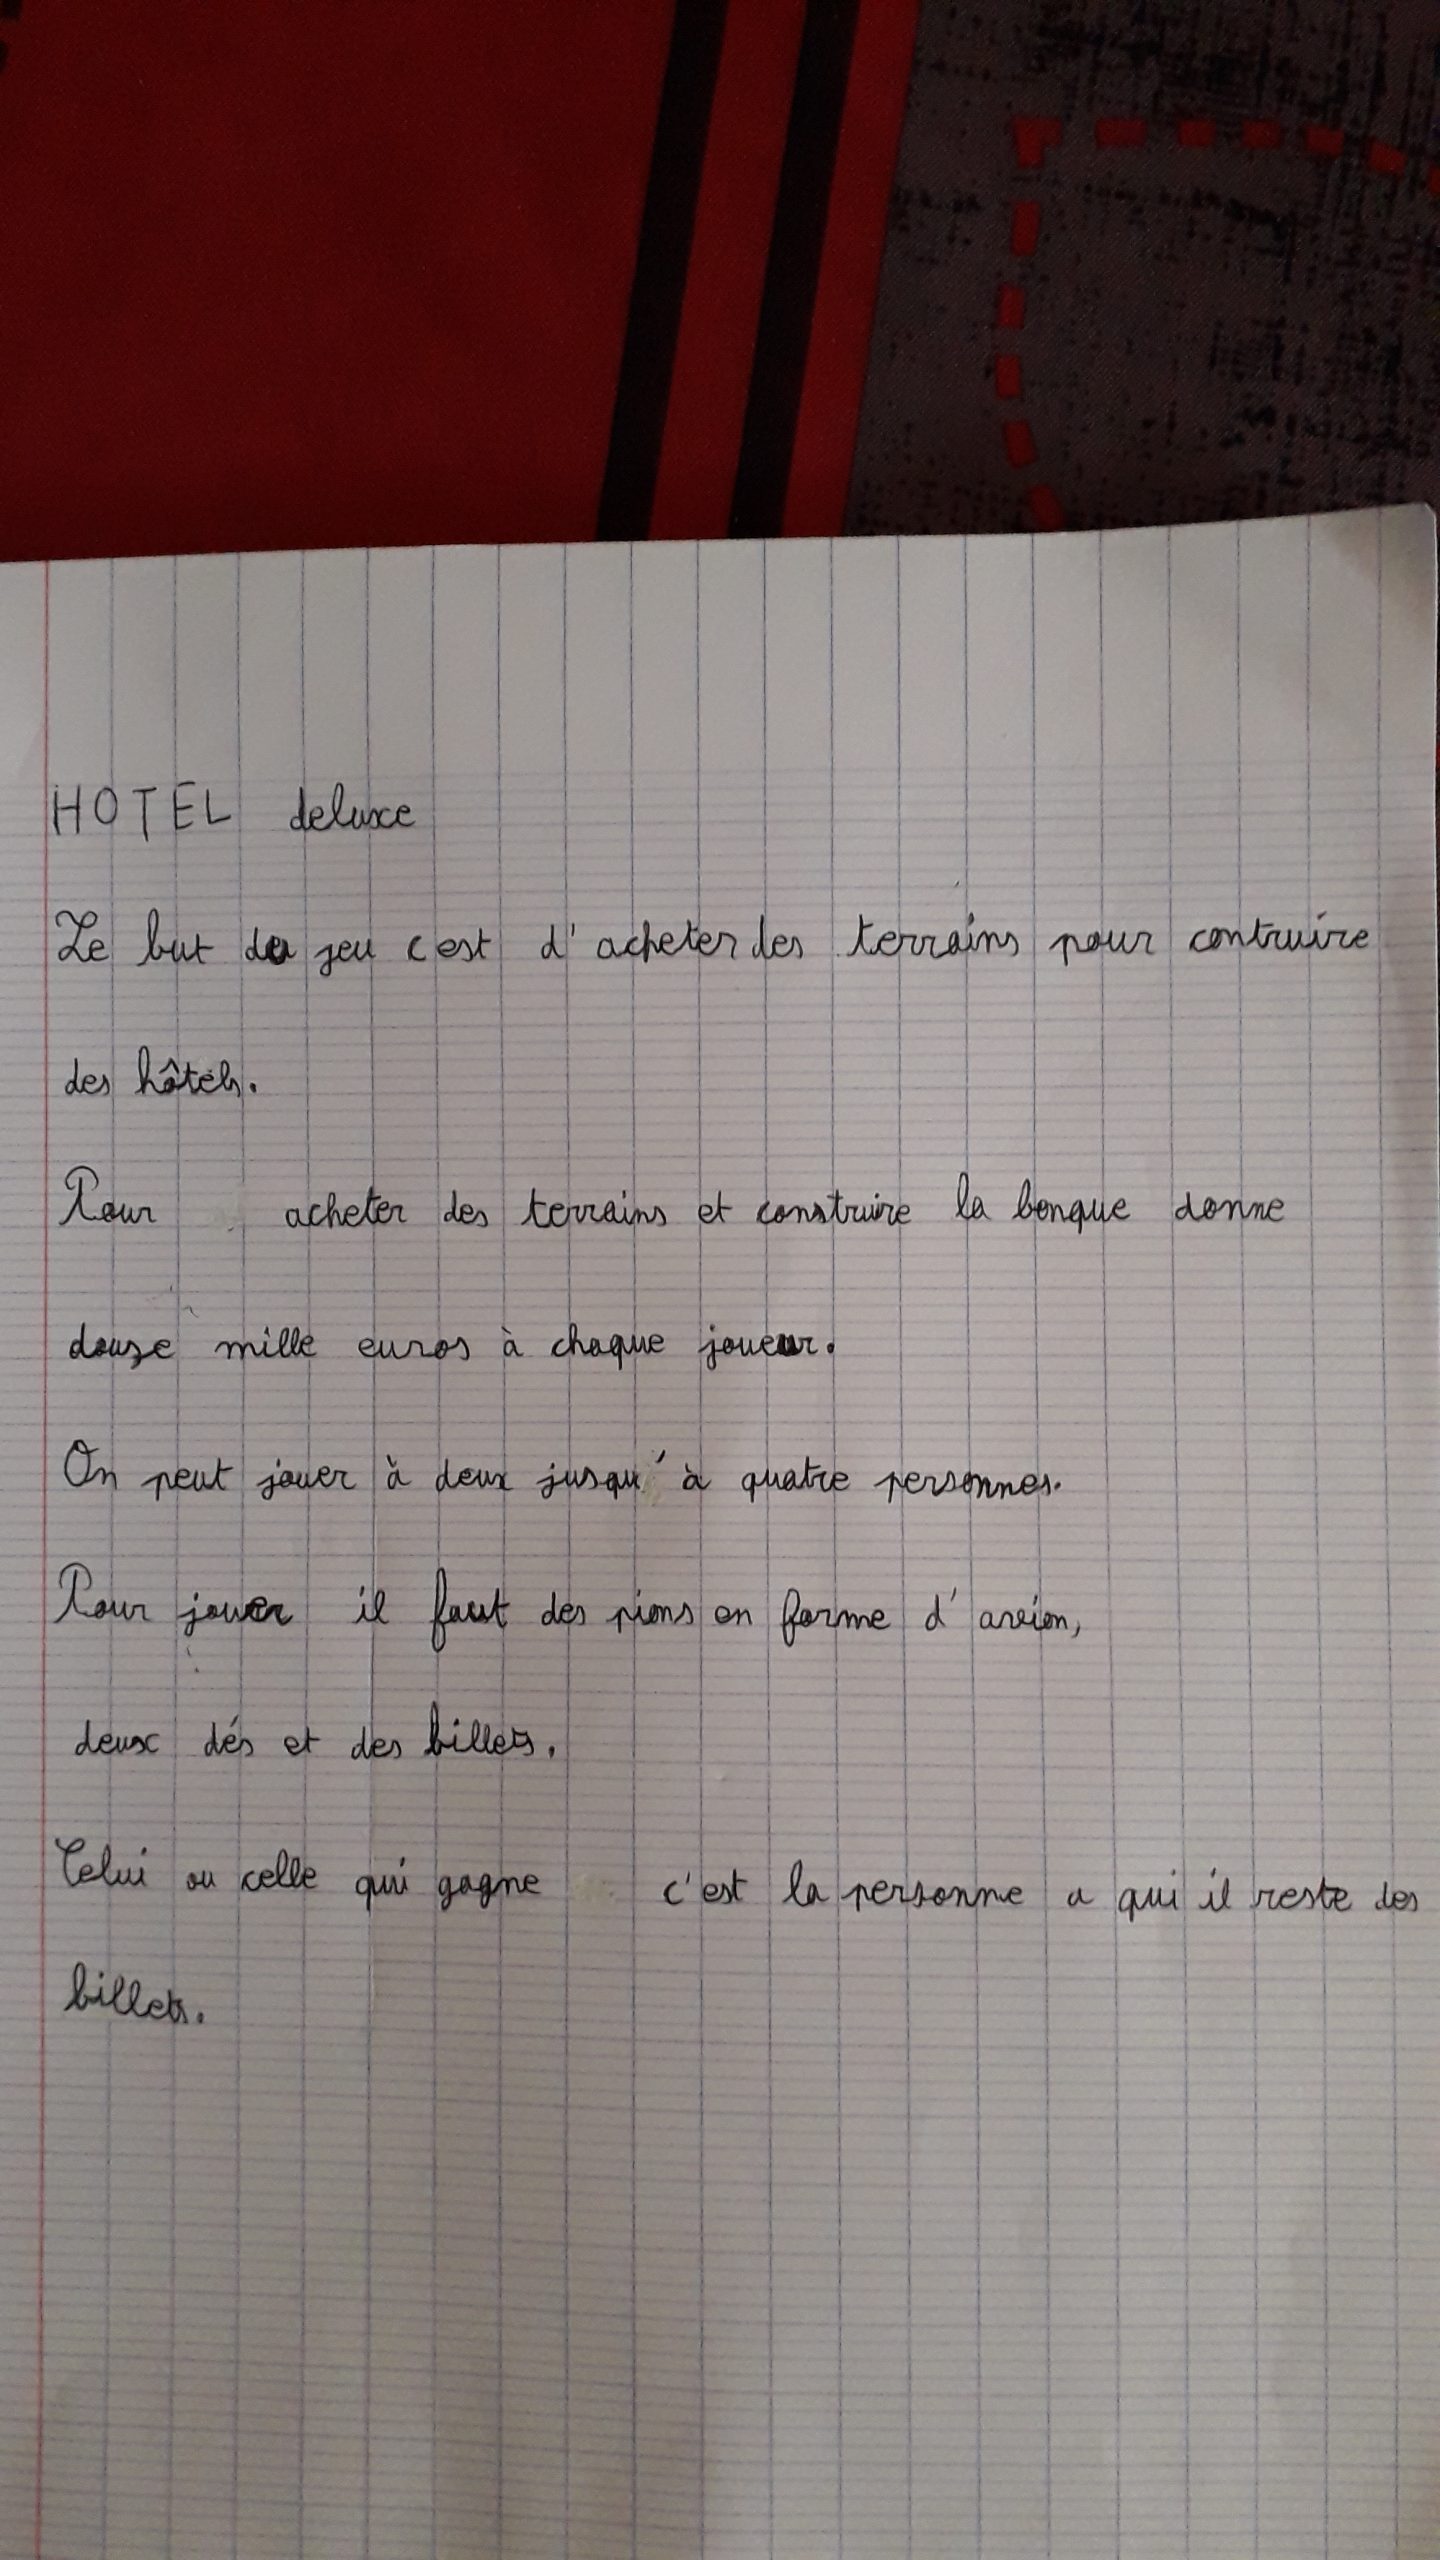 HOTEL deluxe
Le but du jeu c'est d'acheter des terrains pour contruire
des hôtels.
Pour acheter des terrains et construire la banque donne
douze mille euros à chaque joueur.
On peut jouer à deux jusqu'à quatre personnes.
Pour jouer il faut des pions en forme d'avion,
deux dés et des billets.
Celui ou celle qui gagne c'est la personne a qui il reste des
billets.